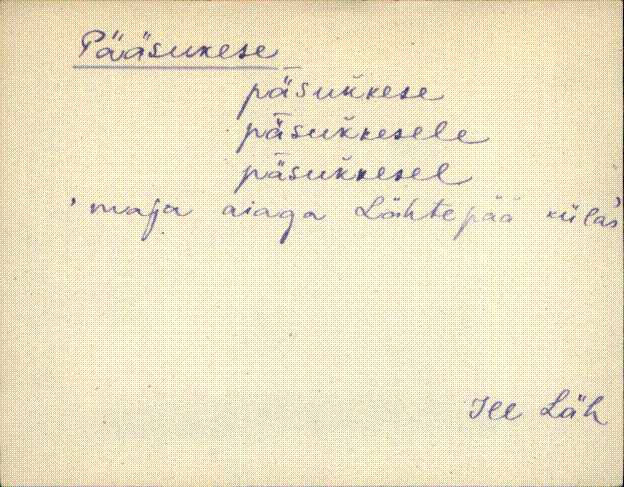 Pääsukese
pǟsuk̆kese
pǟsuk̆kesele
pǟsuk̆kesel
'maja aiaga Lähtepää külas'
Jõe Läh